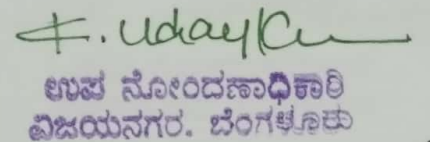 K. Uday Ku
ಉಪ ನೋಂದಣಾಧಿಕಾರಿ
ವಿಜಯನಗರ. ಬೆಂಗಳೂರು